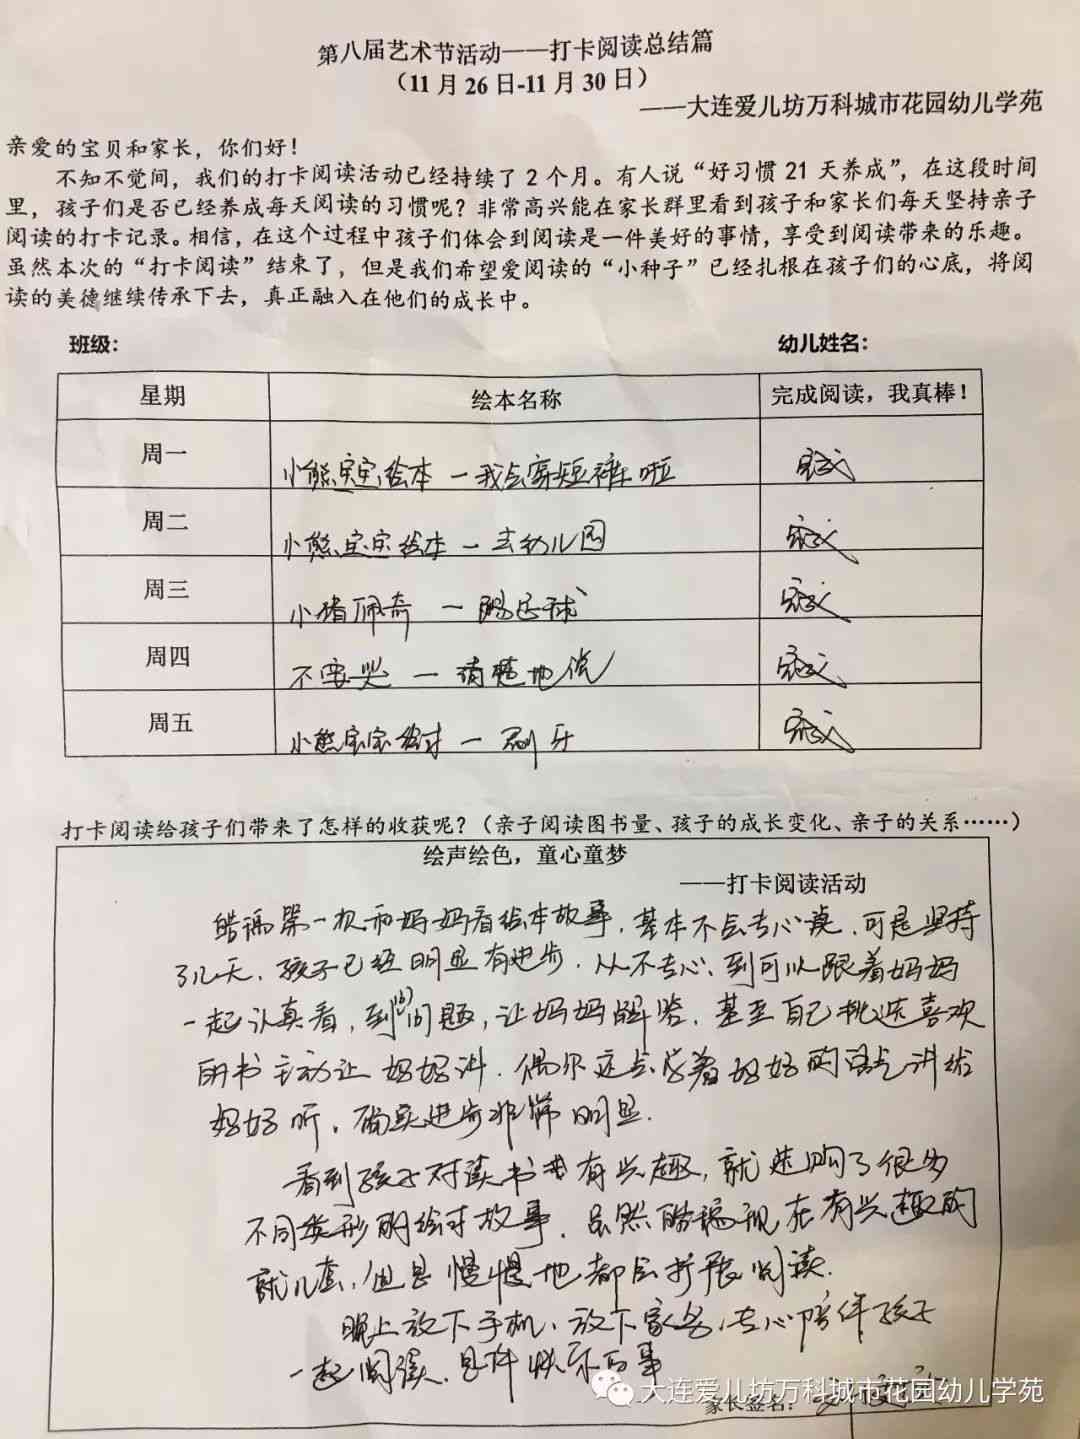 第八届艺术节活动——打卡阅读总结篇
（11月26日-11月30日）
——大连爱儿坊万科城市花园幼儿学苑
亲爱的宝贝和家长，你们好！
不知不觉间，我们的打卡阅读活动已经持续了2个月。有人说“好习惯21天养成”，在这段时间
里，孩子们是否已经养成每天阅读的习惯呢？非常高兴能在家长群里看到孩子和家长们每天坚持亲子
阅读的打卡记录。相信，在这个过程中孩子们体会到阅读是一件美好的事情，享受到阅读带来的乐趣。
虽然本次的“打卡阅读”结束了，但是我们希望爱阅读的“小种子”已经扎根在孩子们的心底，将阅
读的美德继续传承下去，真正融入在他们的成长中。
班级： 幼儿姓名：
星期 绘本名称 完成阅读，我真棒！
周一 小熊宝宝绘本－我会穿短裤啦 完成
周二 小熊宝宝绘本－去幼儿园 完成
周三 小猪佩奇－踢足球 完成
周四 不要哭－清楚地说 完成
周五 小熊宝宝绘本－刷牙 完成
打卡阅读给孩子们带来了怎样的收获呢？（亲子阅读图书量、孩子的成长变化、亲子的关系……）
绘声绘色，童心童梦
——打卡阅读活动
第一次和妈妈看绘本故事，基本不会专心读，可是坚持
了几天，孩子已经明显有进步，从不专心、到可以跟着妈妈
一起认真看，到问问题，让妈妈解答，甚至自己挑选喜欢
的书主动让妈妈讲，偶尔还会学着妈妈的语气讲给
妈妈听，确实进步非常明显．
看到孩子对读书有兴趣，就选购了很多
不同类形的绘本故事，虽然现在有兴趣的
就几套，但是慢慢地都会扩展阅读．
晚上放下手机、放下家务，专心陪伴孩子
一起阅读，是件快乐的事
家长签名：
大连爱儿坊万科城市花园幼儿学苑